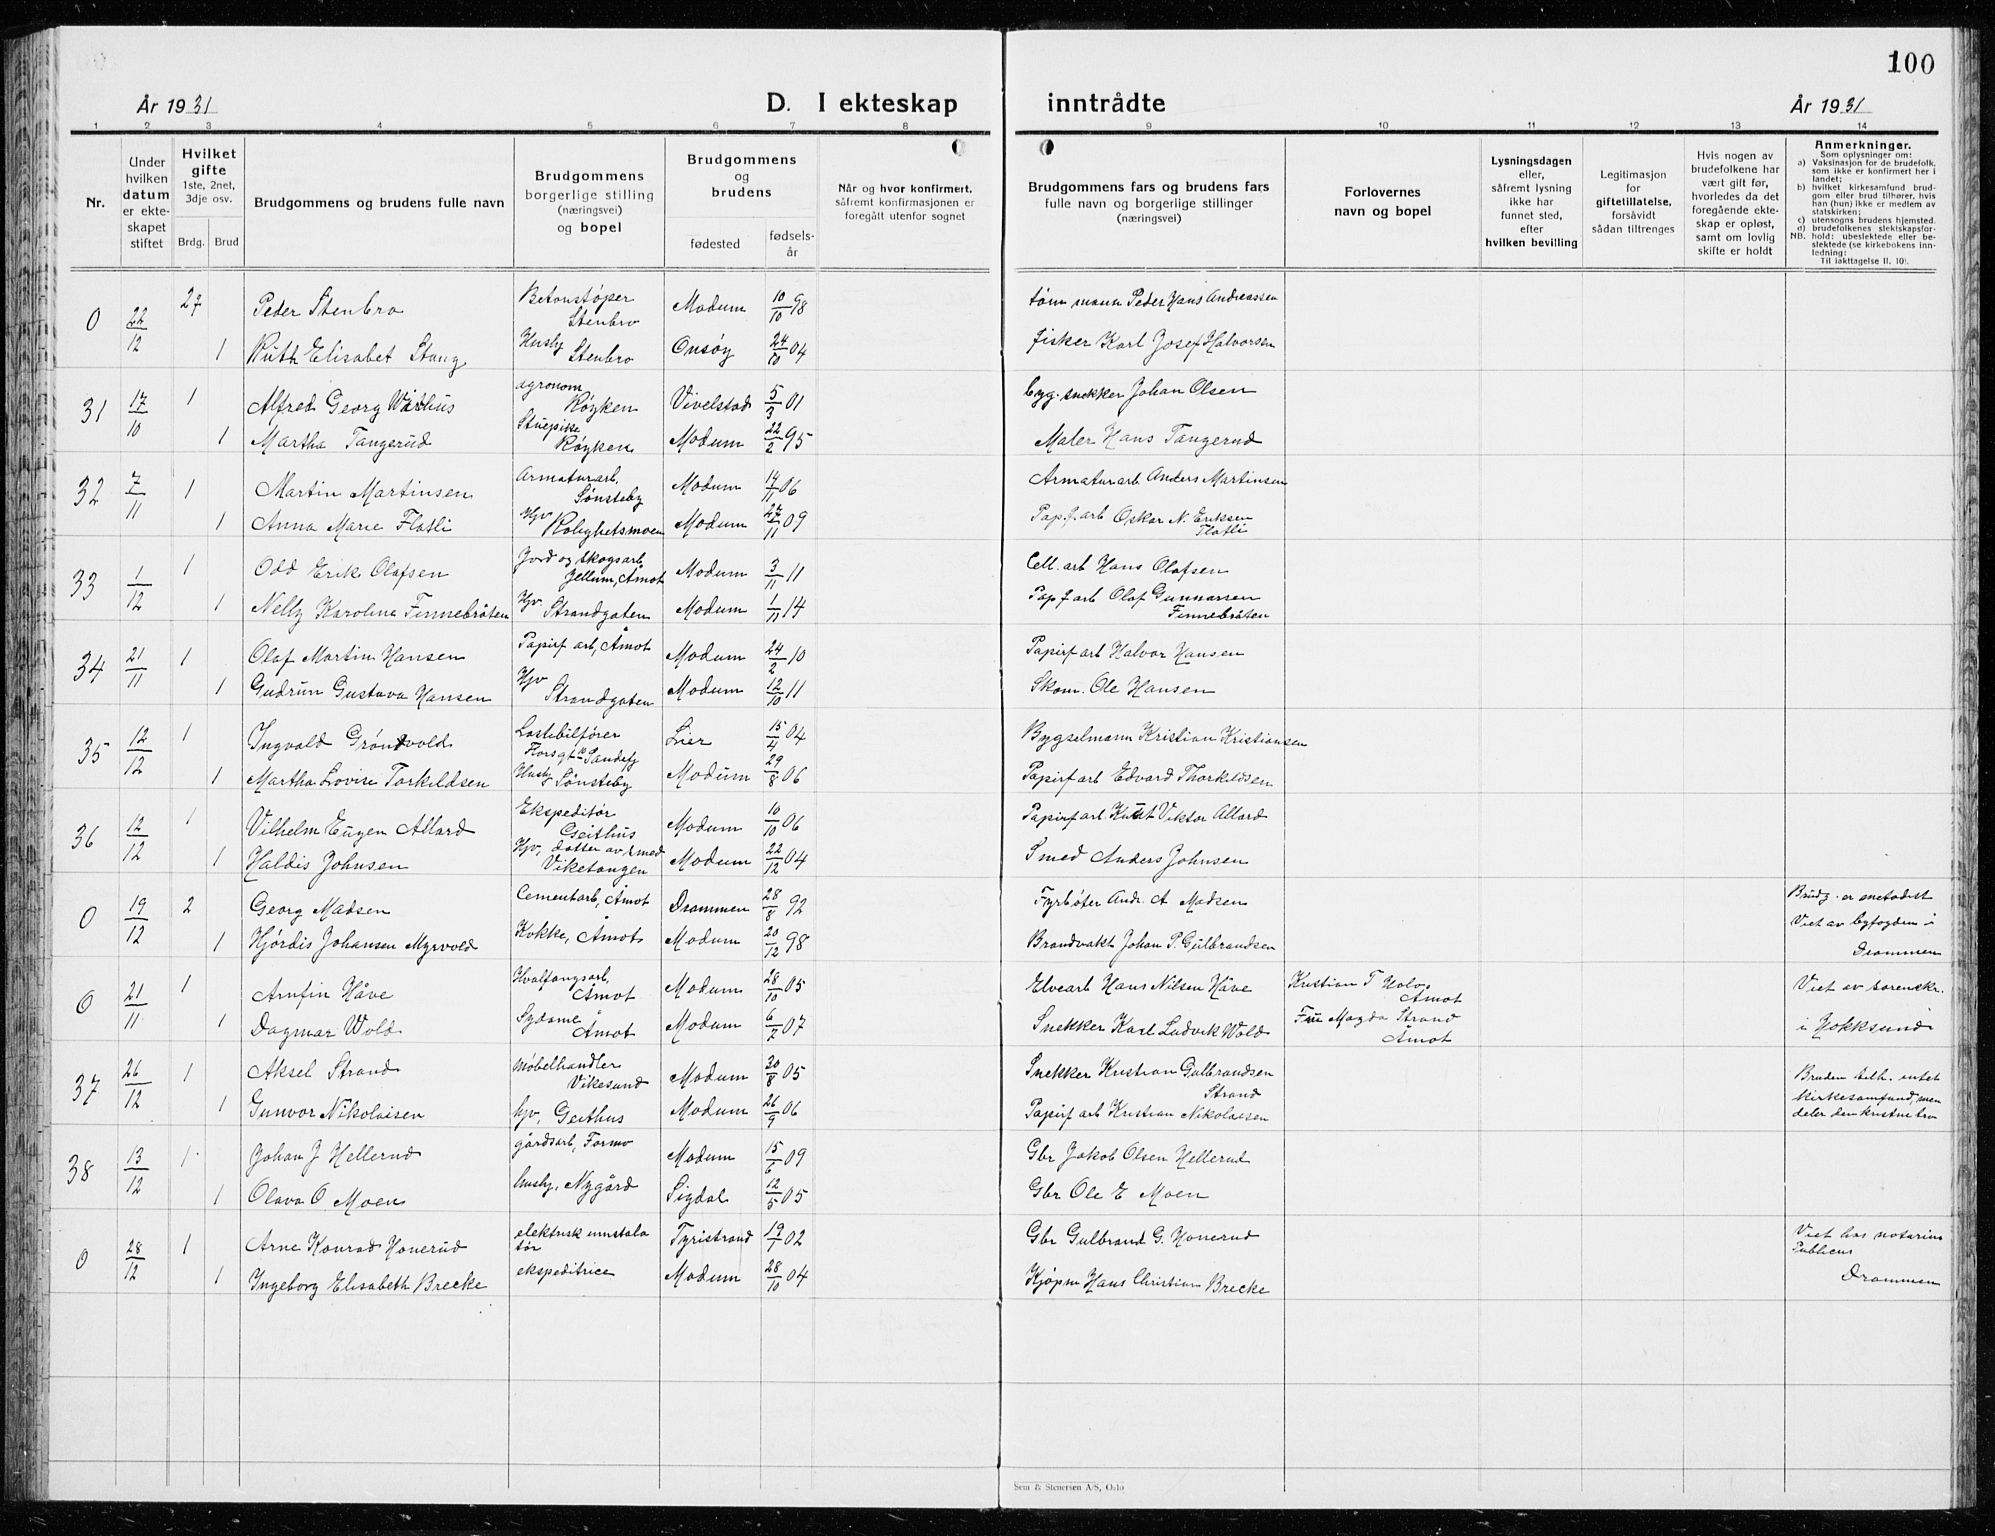 100
År 1931
D. I ekteskap inntrådte
År 1931
1 2 3 4 5 6 7 8 9 10 11 12 13 14
Nr.
Under hvilken datum er ekteskapet stiftet
Hvilket gifte 1ste, 2net, 3dje osv.
Brdg. Brud
Brudgommens og brudens fulle navn
Brudgommens borgerlige stilling (næringsvei) og bopel
Brudgommens og brudens
fødested
fødselsår
Når og hvor konfirmert, såfremt konfirmasjonen er foregått utenfor sognet
Brudgommens fars og brudens fars fulle navn og borgerlige stillinger (næringsvei)
Forlovernes navn og bopel
Lysningsdagen eller, såfremt lysning ikke har funnet sted, efter hvilken bevilling
Legitimasjon for giftetillatelse, forsåvidt sådan tiltrenges
Hvis nogen av brudefolkene har vært gift før, hvorledes da det foregående ekteskap er opløst, samt om lovlig skifte er holdt
Anmerkninger.
Som oplysninger om:
a) Vaksinasjon for de brudefolk, som ikke er konfirmert her i landet;
b) hvilket kirkesamfund brudgom eller brud tilhører, hvis han (hun) ikke er medlem av statskirken;
c) utensogns brudens hjemsted.
d) brudefolkenes slektskapsforhold: ubeslektede eller beslektede (se kirkebokens innledning:
NB. Til iakttagelse II. 10).
0 22/12 2 Peder Stenbro Betonstøper Stenbro Modum 10/10 98 tøm mann Peder Hans Andreassen
1 Ruth Elisabet Stang Husby Stenbro Onsøy 24/10 04 fisker Karl Josef Halvorsen
31 17/10 1 Alfred Georg Warhus agronom Røyken Vivelstad 5/3 01 byg. snekker Johan Olsen
1 Martha Tangerud Stuepike Røyken Modum 22/2 95 Maler Hans Tangerud
32 7/11 1 Martin Martinsen Armaturarb. Sønsteby Modum 14/11 06 Armaturarb Anders Martinsen
1 Anna Marie Flatli Hjv Rolighetsmoen Modum 27/11 09 Pap.f.arb Oskar N. Eriksen Flatli
33 1/12 1 Odd Erik Olafsen Jord og skogsarb. Jellum, Åmot Modum 3/11 11 Cell. arb Hans Olafsen
1 Nelly Karoline Finnebråten Hjv. Strandgaten Modum 1/11 14 Pap f arb Olaf Gunnarsen Finnebråten
34 21/11 1 Olaf Martin Hansen Papirf arb, Åmot Modum 24/2 10 Papirf arb Halvor Hansen
1 Gudrun Gustava Hansen Hjv Strandgaten Modum 12/10 11 Skom. Ole Hansen
35 12/12 1 Ingvald Grøndvold Lastebilfører Sandefj Lier 15/4 04 Bygselmann Kristian Kristiansen
1 Martha Lovise Torkildsen Husby Sønsteby Modum 29/8 06 Papirf arb Edvard Thorkildsen
36 12/12 1 Vilhelm Eugen Allard Ekspeditør Geithus Modum 10/10 06 Papirf arb Knut Viktor Allard
1 Haldis Johnsen Hjv, datter av smed Viketangen Modum 22/12 04 Smed Anders Johnsen
0 19/12 2 Georg Madsen Cementarb, Åmot Drammen 28/8 92 Fyrbøter Andr. A Madsen Brudg. er metodist
1 Hjørdis Johansen Myrvold Kokke, Åmot Modum 20/12 98 Brandvakt Johan P. Gulbrandsen Viet av byfogden i Drammen
0 21/11 1 Arnfin Håve Hvalfangsarb, Åmot Modum 28/10 05 Elvearb Hans Nilsen Håve Kristian T Åmot Viet av sorenskr.
1 Dagmar Wold Sydame Åmot Modum 6/7 07 Snekker Karl Ludvik Wold Fru Magda Strand Åmot i Hokksund
37 26/12 1 Aksel Strand Møbelhandler Vikesund Modum 30/8 05 Snekker Kristian Gulbrandsen Strand Bruden tilh. intet
1 Gunvor Nikolaisen hjv, Geithus Modum 26/9 06 Papirf arb Kristian Nikolaisen kirkesamfund, men deler den kristne tro
38 13/12 1 Johan J Hellerud gårdsarb, Formo Modum 15/6 09 Gbr Jakob Olsen Hellerud
1 Olava O. Moen husby, Nygård Sigdal 12/5 05 Gbr Ole E Moen
0 28/12 1 Arne Konrad Honerud elektrisk innstalatør Tyristrand 19/1 02 Gbr Gulbrand G. Honerud Viet hos notarius Publicus
1 Ingeborg Elisabeth Brecke ekspeditrice Modum 28/10 04 Kjøpm Hans Christian Brecke Drammen
Sem & Stenersen A/S, Oslo